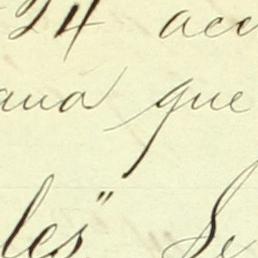 24 acc
ana que
les" Se